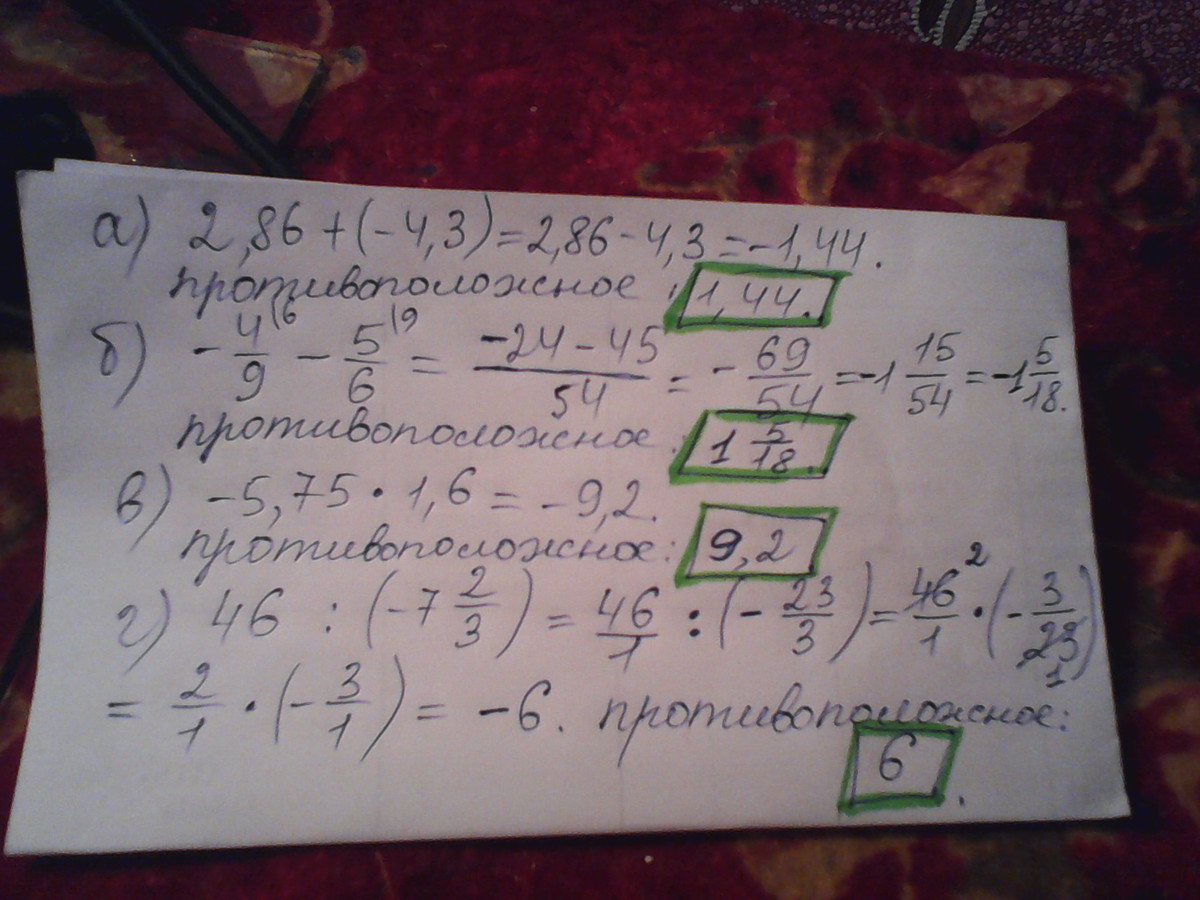 а) 2,86 + (-4,3) = 2,86 - 4,3 = -1,44.
противоположное: 1,44.
б) -4/9 (6 - 5/6 (9 = (-24-45)/54 = -69/54 = -1 15/54 = -1 5/18.
противоположное: 1 5/18.
в) -5,75 · 1,6 = -9,2.
противоположное: 9,2
г) 46 : (-7 2/3) = 46/1 : (-23/3) = 46 2/1 · (-3/23 1)
= 2/1 · (-3/1) = -6. противоположное:
6.